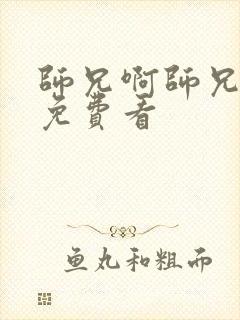 師兄啊師兄
免費看
鱼丸和粗面